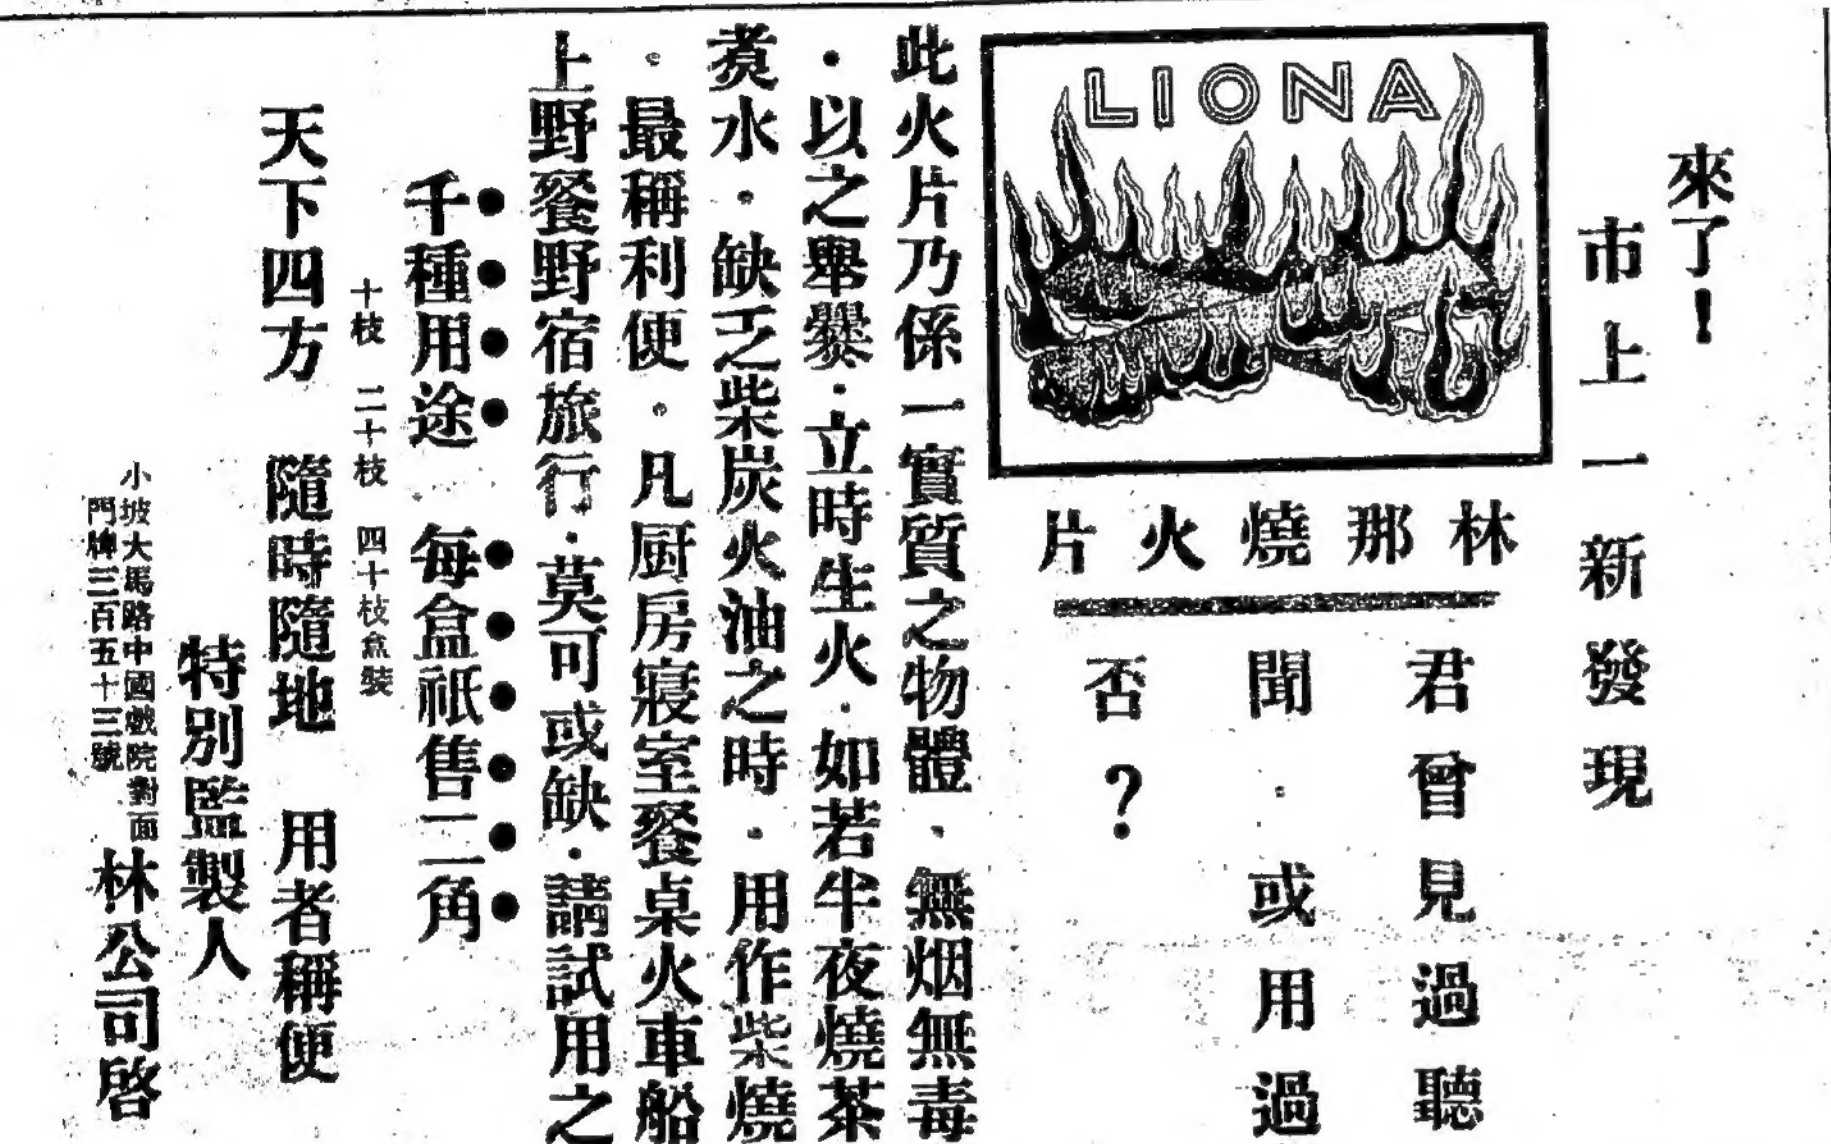 來了！
市上一新發現
LIONA
林那燒火片
君曾見過聽
聞．或用過
否？
此火片乃係一實質之物體．無烟無毒
．以之舉爨．立時生火．如若半夜燒茶
煑水．缺乏柴炭火油之時．用作柴燒
。最稱利便。凡厨房寢室餐桌火車船
上野餐野宿旅行．莫可或缺．請試用之
千種用途 每盒祇售二角
十枝 二十枝 四十枝盒裝
天下四方 隨時隨地 用者稱便
特別監製人
小坡大馬路中國戲院對面
門牌三百五十三號
林公司啓